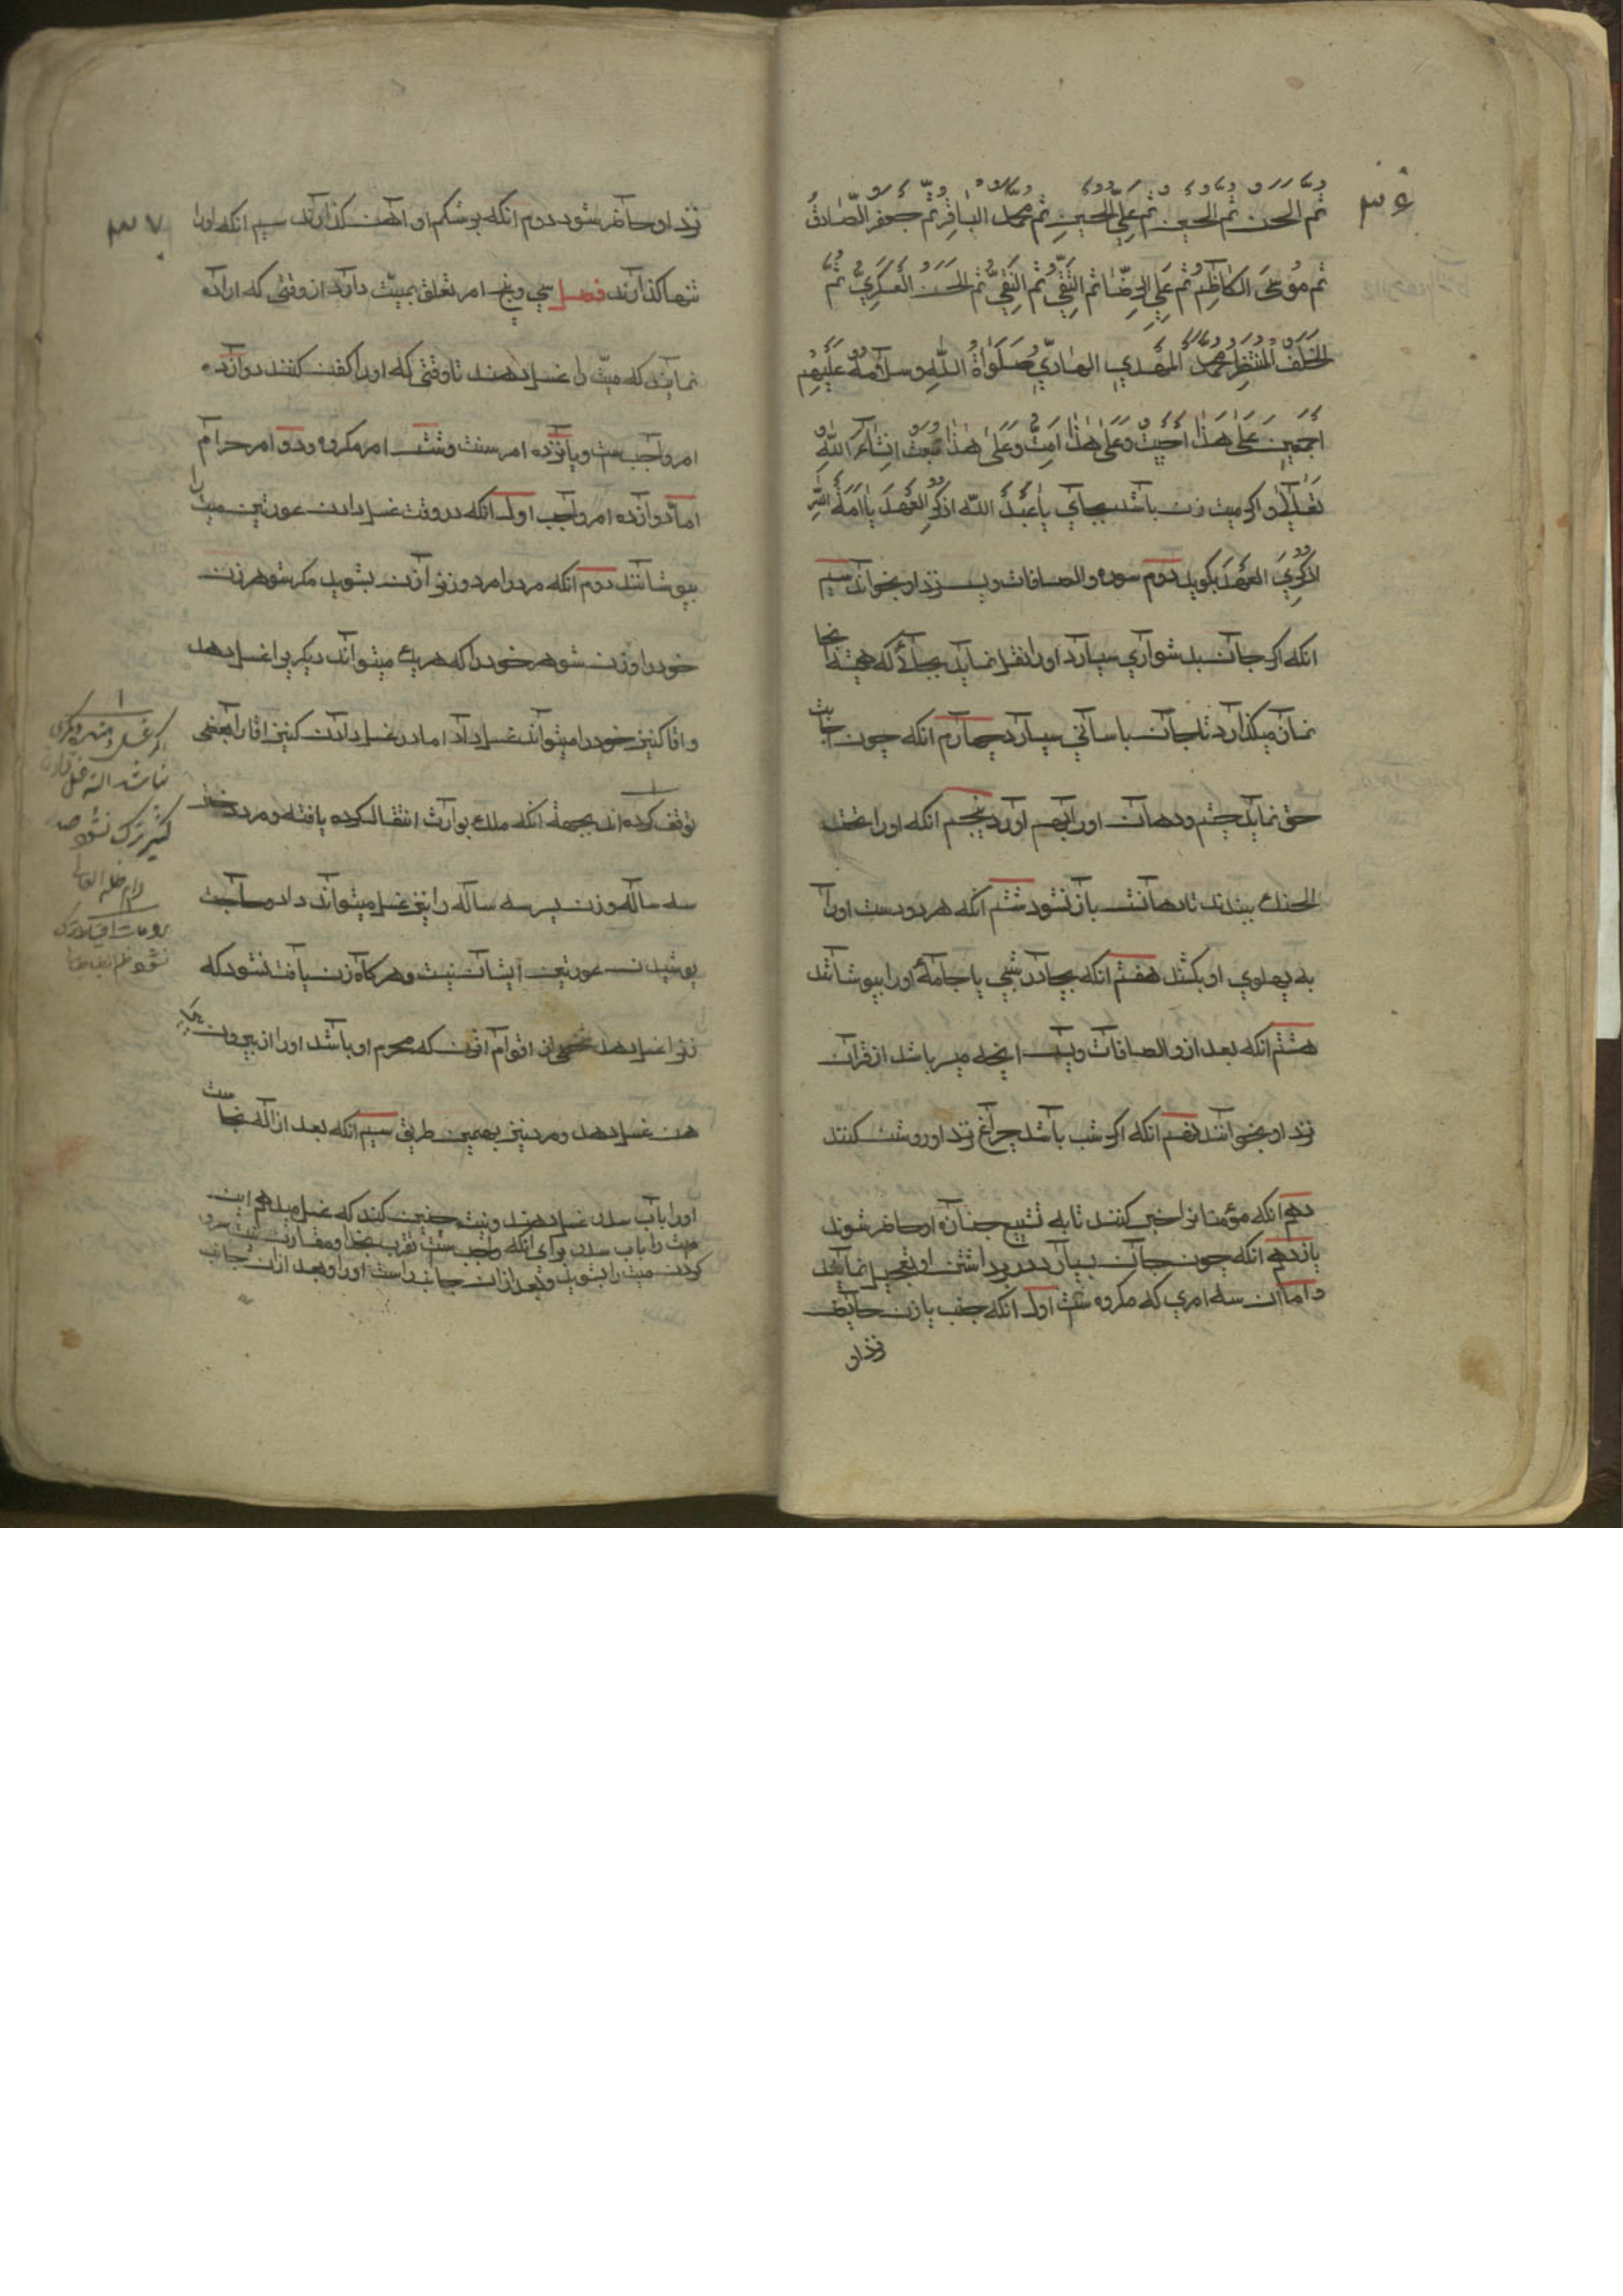 ۳۶
ثم الحسن ثم الحسین ثم علی بن الحسین ثم محمد الباقر ثم جعفر الصّادق
ثم مُوسَی الکاظِمُ ثم عَلِیِ الرِّضَا ثم التَّقِیُّ ثم النَّقِیُّ ثم الحَسَنُ العَسکَرِیُّ ثم
الخَلَفُ المُنتَظِرُ مُحَمَّد المَهدِي الهَادِيّ صَلَوَاةُ اللّهِ وسَلَامُهُ عَلَیهِم
اَجمَعِینَ عَلی هَذَا اَحیَیتُ وَعَلَی هَذَا اَمِتُّ وَعَلَی هَذَا تُبعَثُ اِنشَاءَ اللّهُ
تَعَالَی و اکر میت زن باشد بجاي یَا عَبدَ اللّه اذکُرِ العَهدَ یَا اَمَةَ اللّهِ
اذکُرِي العَهدَ بکوید دوم سوره والصافات ویس نزد او بخواند سیم
انکه اکر جان بدشواري سپارد اورا نقل نماید بجائی که همیشه انجا
نماز میکذارد تا جان باسانی سپارد چهارم انکه چون اجابت
حق نماید چشم ودهان اورا بهم اورد پنجم انکه اورا تحت
الحنك ببندند تا دهانش باز نشود ششم انکه هر دو دست اورا
به پهلوي او بکشند هفتم انکه بچادر شبی یا جامهٔ اورا بپوشانند
هشتم انکه بعد از والصافات ویس انچه میسر باشد از قران
نزد او بخوانند نهم انکه اکر شب باشد چراغ نزد او روشن کنند
دهم انکه مؤمنانرا خبر کنند تا به تشییع جنازه او حاضر شوند
یازدهم انکه چون جان بسپارد در برداشتن او تعجیل نمایند
و اما ان سه امري که مکروه ست اول انکه جنب یا زن حایض
نزد او
۳۷
نزد او حاضر شود دوم انکه بر شکم او اهن کذارند سیم انکه اورا
تنها کذارند فصل سی و پنج امر تعلق بمیّت دارد از وقتی که اراده
نمایند که میّت را غسل دهند تا وقتی که اورا کفن کنند دوازده
امر واجبست و پانزده امر سنت وشش امر مکروه ودو امر حرام
اما دوازده امر واجب اول انکه در وقت غسل دادن عورتین میت را
بپوشانند دوم انکه مرد را مرد وزنرا زن بشوید مکر شوهر زن
خود را وزن شوهر خود را که هر یك میتواند دیکریرا غسل دهد
واقا کنیز خود را میتواند غسل داد اما در غسل دادن کنیز اقا را بعضی
توقف کرده اند بجهة انکه ملك بوارث انتقال کرده یافته و مرد دختر
سه ساله وزن پسر سه ساله را نیز غسل میتواند داد وحاجت
پوشیدن عورتین ایشان نیست وهرکاه زن یافت نشود که
زنرا غسل دهد شخصی از اقوام انزن که محرم او باشد اورا از بیرون
غسل دهد ومرد نیز بهمین طریق سیم انکه بعد ازاله نجاست
اورا باب سدر غسل دهند ونیت چنین کند که غسل میدهم این
میت را باب سدر برای انکه واجب ست تقرب بخدا ومقارن نیت سرو
کردن میت را بشوید وبعد ازان جانب راست اورا وبعد ازان جانب